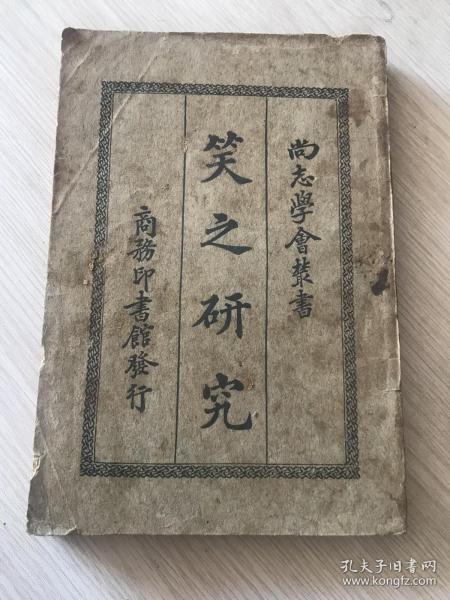 尚志學會叢書
笑之研究
商務印書館發行
孔夫子旧书网
www.kongfz.com